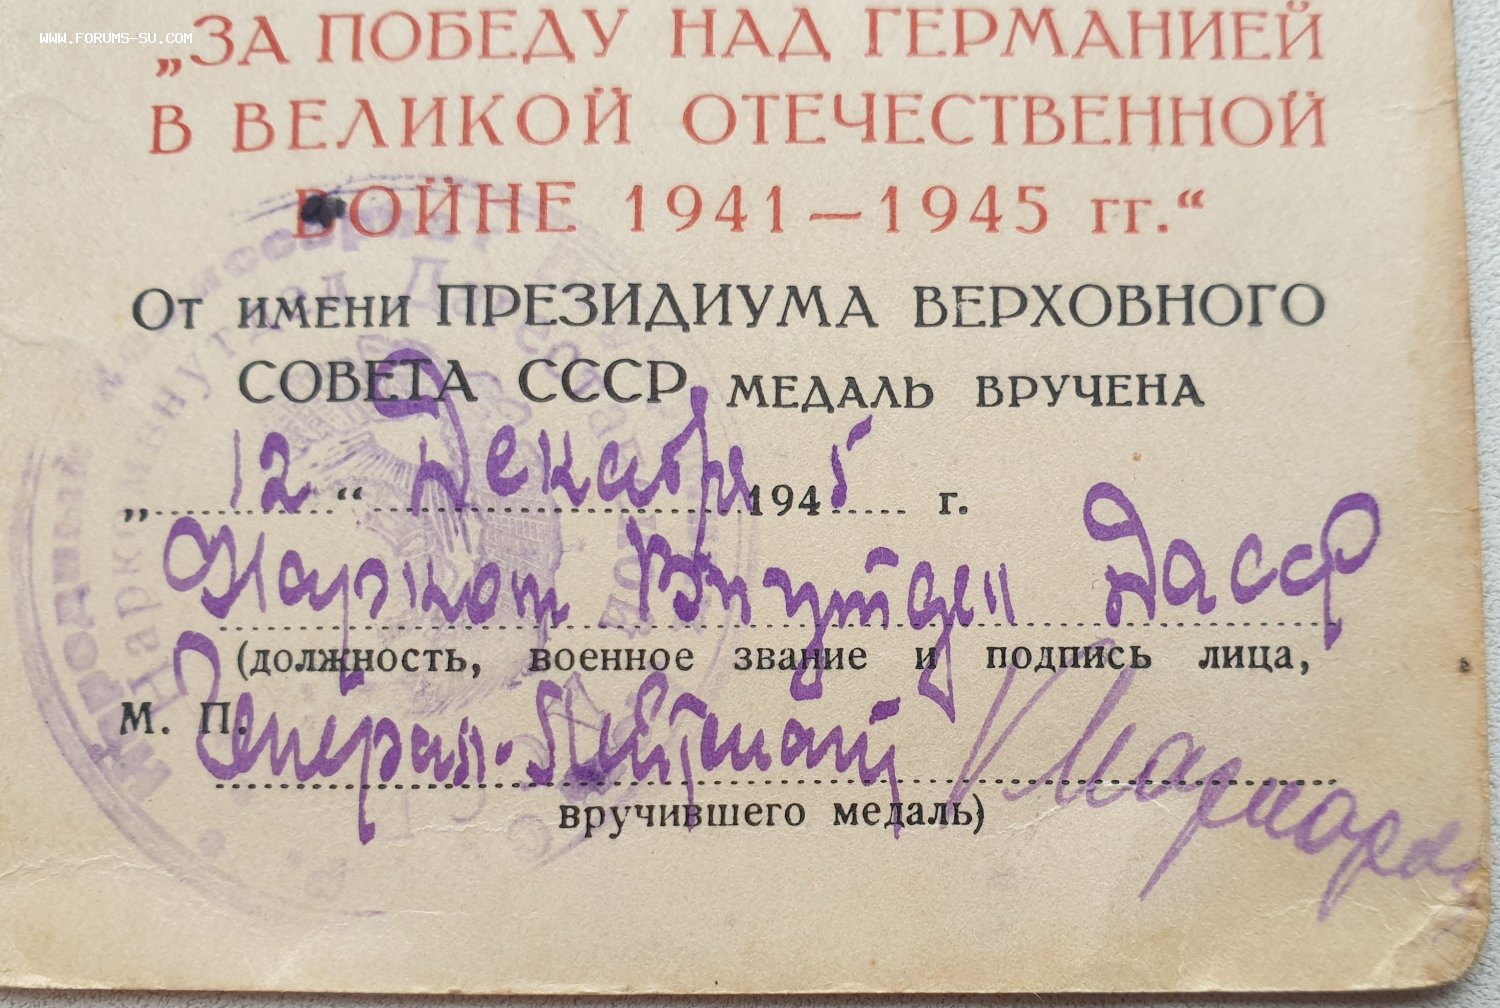 www.forums-su.com
„ЗА ПОБЕДУ НАД ГЕРМАНИЕЙ
В ВЕЛИКОЙ ОТЕЧЕСТВЕННОЙ
ВОЙНЕ 1941—1945 гг.“
От имени ПРЕЗИДИУМА ВЕРХОВНОГО
СОВЕТА СССР медаль вручена
„12“ Декабря 1945 г.
Нарком Внутдел ДАССР
(должность, военное звание и подпись лица,
М. П. Генерал-Лейтенант
вручившего медаль)